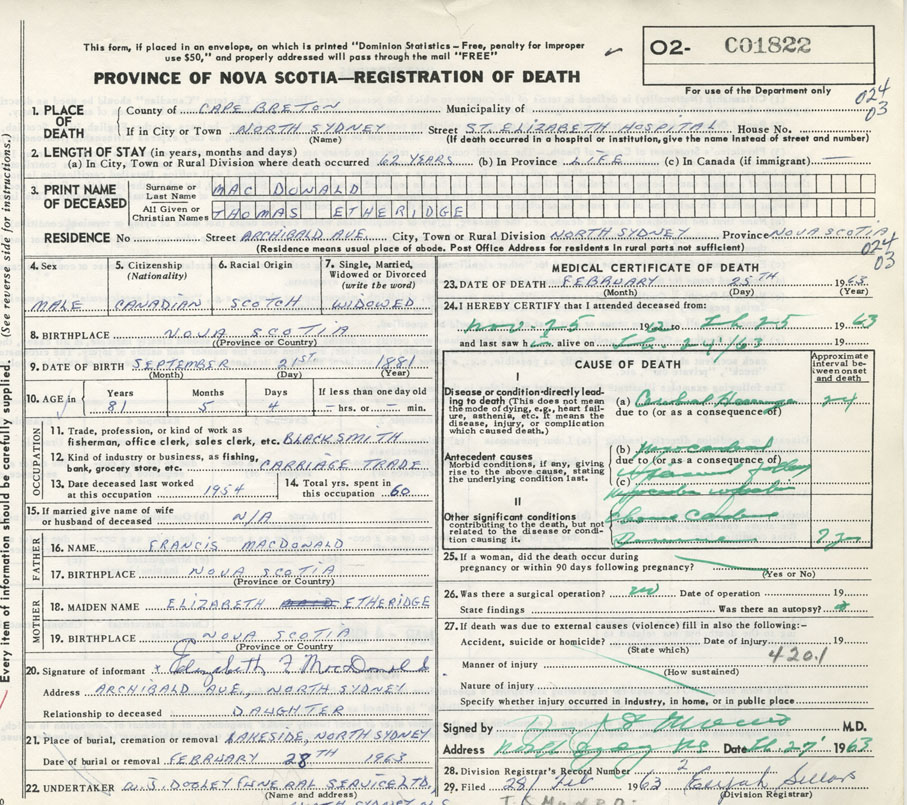 This form, if placed in an envelope, on which is printed "Dominion Statistics – Free, penalty for improper
use $50," and properly addressed will pass through the mail "FREE"
PROVINCE OF NOVA SCOTIA—REGISTRATION OF DEATH
O2- C01822
For use of the Department only
024
03
(See reverse side for instructions.)
Every item of information should be carefully supplied.
1. PLACE OF DEATH
County of CAPE BRETON Municipality of
If in City or Town NORTH SYDNEY Street ST. ELIZABETH HOSPITAL House No.
(Name) (If death occurred in a hospital or institution, give the name instead of street and number)
2. LENGTH OF STAY (in years, months and days)
(a) In City, Town or Rural Division where death occurred 62 YEARS (b) In Province LIFE (c) In Canada (if immigrant) —
3. PRINT NAME OF DECEASED
Surname or Last Name MAC DONALD
All Given or Christian Names THOMAS ETHERIDGE
RESIDENCE No Street ARCHIBALD AVE. City, Town or Rural Division NORTH SYDNEY Province NOVA SCOTIA
(Residence means usual place of abode. Post Office Address for residents in rural parts not sufficient)
024
03
4. Sex
MALE
5. Citizenship (Nationality)
CANADIAN
6. Racial Origin
SCOTCH
7. Single, Married, Widowed or Divorced (write the word)
WIDOWED
8. BIRTHPLACE NOVA SCOTIA
(Province or Country)
9. DATE OF BIRTH SEPTEMBER 21ST 1881
(Month) (Day) (Year)
10. AGE in
Years Months Days If less than one day old
81 5 4 – hrs. or – min.
OCCUPATION
11. Trade, profession, or kind of work as
fisherman, office clerk, sales clerk, etc. BLACKSMITH
12. Kind of industry or business, as fishing,
bank, grocery store, etc. CARRIAGE TRADE
13. Date deceased last worked
at this occupation 1954
14. Total yrs. spent in
this occupation 60
15. If married give name of wife
or husband of deceased N/A
FATHER
16. NAME FRANCIS MACDONALD
17. BIRTHPLACE NOVA SCOTIA
(Province or Country)
MOTHER
18. MAIDEN NAME ELIZABETH ETHERIDGE
19. BIRTHPLACE NOVA SCOTIA
(Province or Country)
20. Signature of informant x Elizabeth F MacDonald
Address ARCHIBALD AVE., NORTH SYDNEY
Relationship to deceased DAUGHTER
21. Place of burial, cremation or removal LAKESIDE, NORTH SYDNEY
Date of burial or removal FEBRUARY 28TH 1963
22. UNDERTAKER W.J. DOOLEY FUNERAL SERVICE LTD,
(Name and address)
NORTH SYDNEY N.S.
MEDICAL CERTIFICATE OF DEATH
23. DATE OF DEATH FEBRUARY 25TH 1963
(Month) (Day) (Year)
24. I HEREBY CERTIFY that I attended deceased from:
Nov. 25 1962 to Feb 25 1963
and last saw him alive on Feb. 24/63 19
CAUSE OF DEATH
Approximate interval between onset and death
I
Disease or condition directly leading to death (This does not mean the mode of dying, e.g., heart failure, asthenia, etc. It means the disease, injury, or complication which caused death.)
(a) Cerebral
due to (or as a consequence of)
Antecedent causes
Morbid conditions, if any, giving rise to the above cause, stating the underlying condition last.
(b) Myocardial
due to (or as a consequence of)
(c)
II
Other significant conditions
contributing to the death, but not related to the disease or condition causing it.
25. If a woman, did the death occur during
pregnancy or within 90 days following pregnancy?
(Yes or No)
26. Was there a surgical operation? no Date of operation 19
State findings Was there an autopsy?
27. If death was due to external causes (violence) fill in also the following:–
Accident, suicide or homicide? Date of injury 19
(State which)
420.1
Manner of injury
(How sustained)
Nature of injury
Specify whether injury occurred in Industry, in home, or in public place
Signed by M.D.
Address North Sydney NS Date Feb 27 1963
28. Division Registrar's Record Number 2
29. Filed 28/ Feb 1963
(Division Registrar)